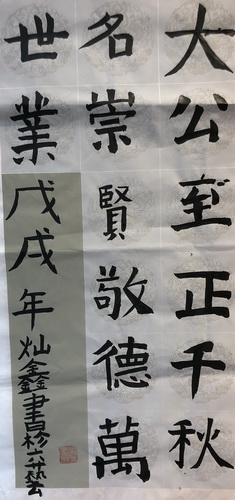 大公至正千秋
名崇賢敬德萬
世業
戊戌年灿鑫書於六藝